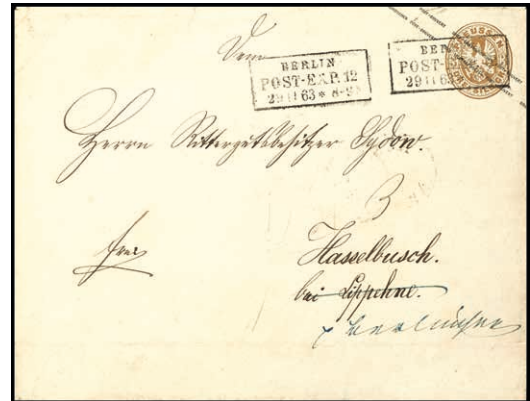 Dem
BERLIN
POST-EXP. 12
29 11 63 * 8-9
BER
POST-
29 11 6
Herrn Rittergutsbesitzer Sydow.
3
frei
Hasselbusch.
bei Lippehne.